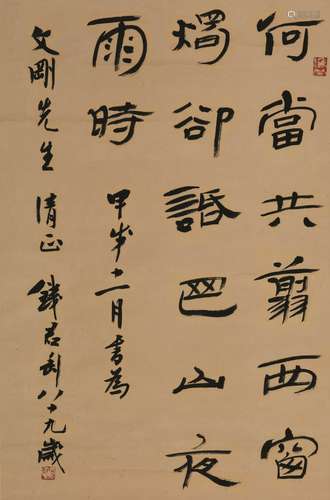 何當共翦西窗
燭卻諙巴山夜
雨時 甲戌十一月書為
文剛先生 清正 錢君匋八十九歲